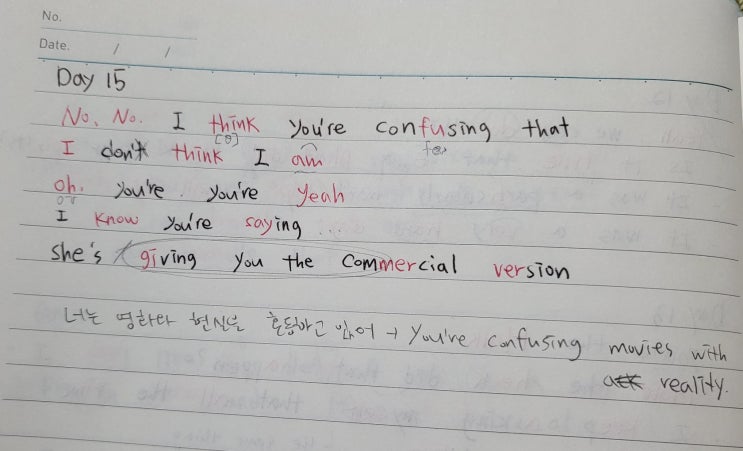 No.
Date. / /
Day 15
No, No. I think you're confusing that
[θ]
I don't think I am
oh. you're. you're yeah
I know you're saying ...
she's giving you the commercial version
너는 영화랑 현실을 혼동하고 있어 → You're confusing movies with
reality.